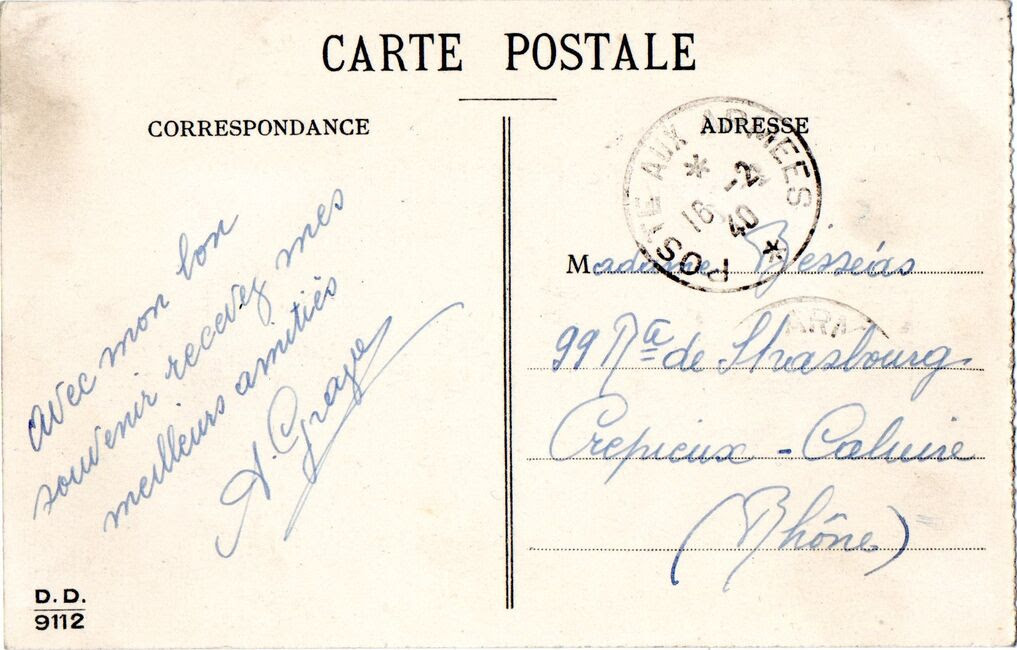 CARTE POSTALE
CORRESPONDANCE
Avec mon bon
souvenir recevez mes
meilleurs amitiés
ADRESSE
POSTE AUX ARMEES
* 16 -2 40 *
ARM
Madame
99 Rte de Strasbourg
Crepieux - Caluire
(Rhône)
D.D.
9112